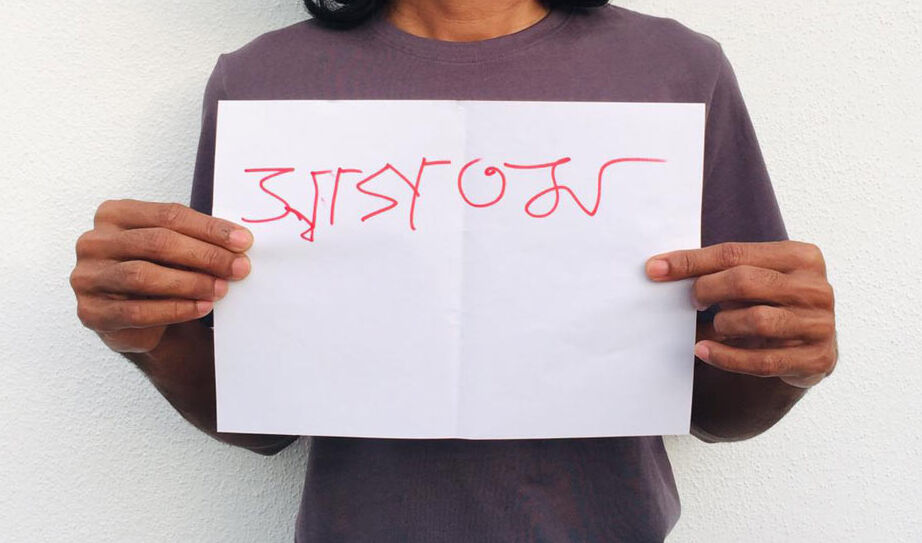 স্বাগতম